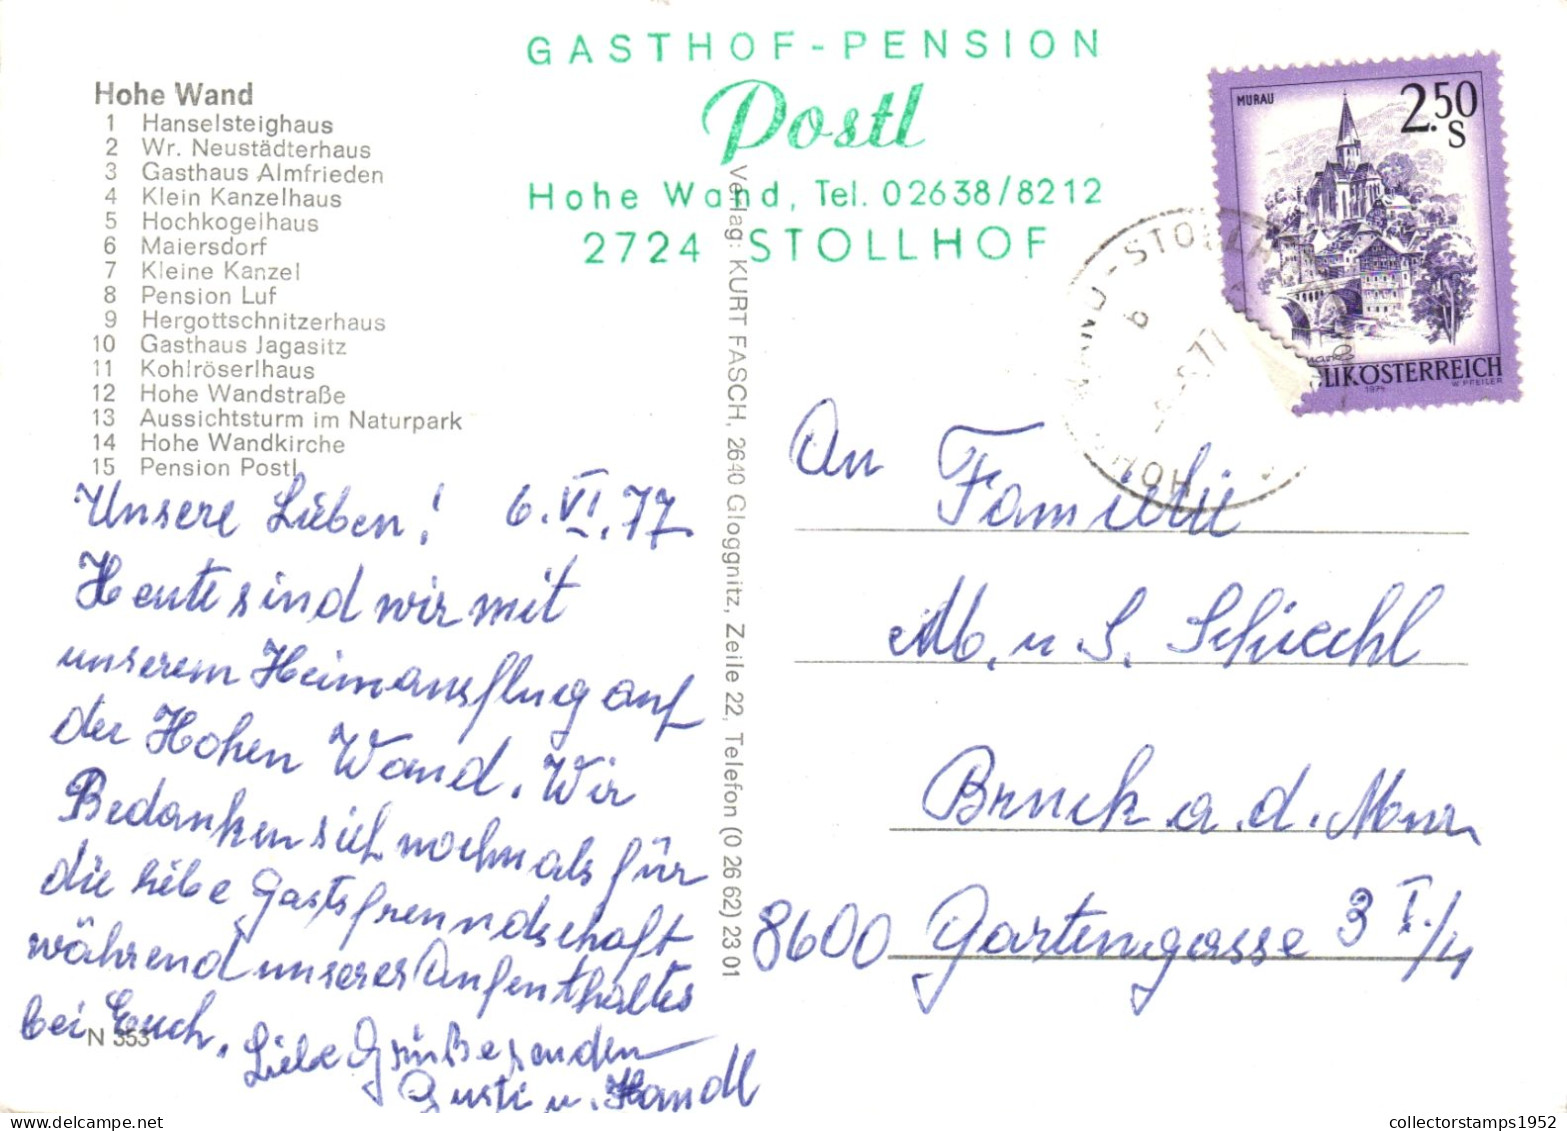 GASTHOF-PENSION
Postl
Hohe Wand, Tel. 02638/8212
2724 STOLLHOF
Hohe Wand
1 Hanselsteighaus
2 Wr. Neustädterhaus
3 Gasthaus Almfrieden
4 Klein Kanzelhaus
5 Hochkogelhaus
6 Maiersdorf
7 Kleine Kanzel
8 Pension Luf
9 Hergottschnitzerhaus
10 Gasthaus Jagasitz
11 Kohlröserlhaus
12 Hohe Wandstraße
13 Aussichtsturm im Naturpark
14 Hohe Wandkirche
15 Pension Postl
Unsere Lieben! 6.VI.77
Heute sind wir mit
unserem Heimausflug auf
der Hohen Wand. Wir
Bedanken sich nochmals für
die liebe Gastsfreundschaft
während unseres Aufenthaltes
bei Euch. Liebe Grüße senden
Gusti u. Handl
N 353
Verlag: KURT FASCH, 2640 Gloggnitz, Zeile 22, Telefon (0 26 62) 23 01
MURAU
2.50
S
BLIK ÖSTERREICH
1974 W. PFEILER
An Familie
M. u S. Schiechl
Bruck a. d. Mur
8600 Gartengasse 3 I./4
hippostcard.com
collectorstamps1952